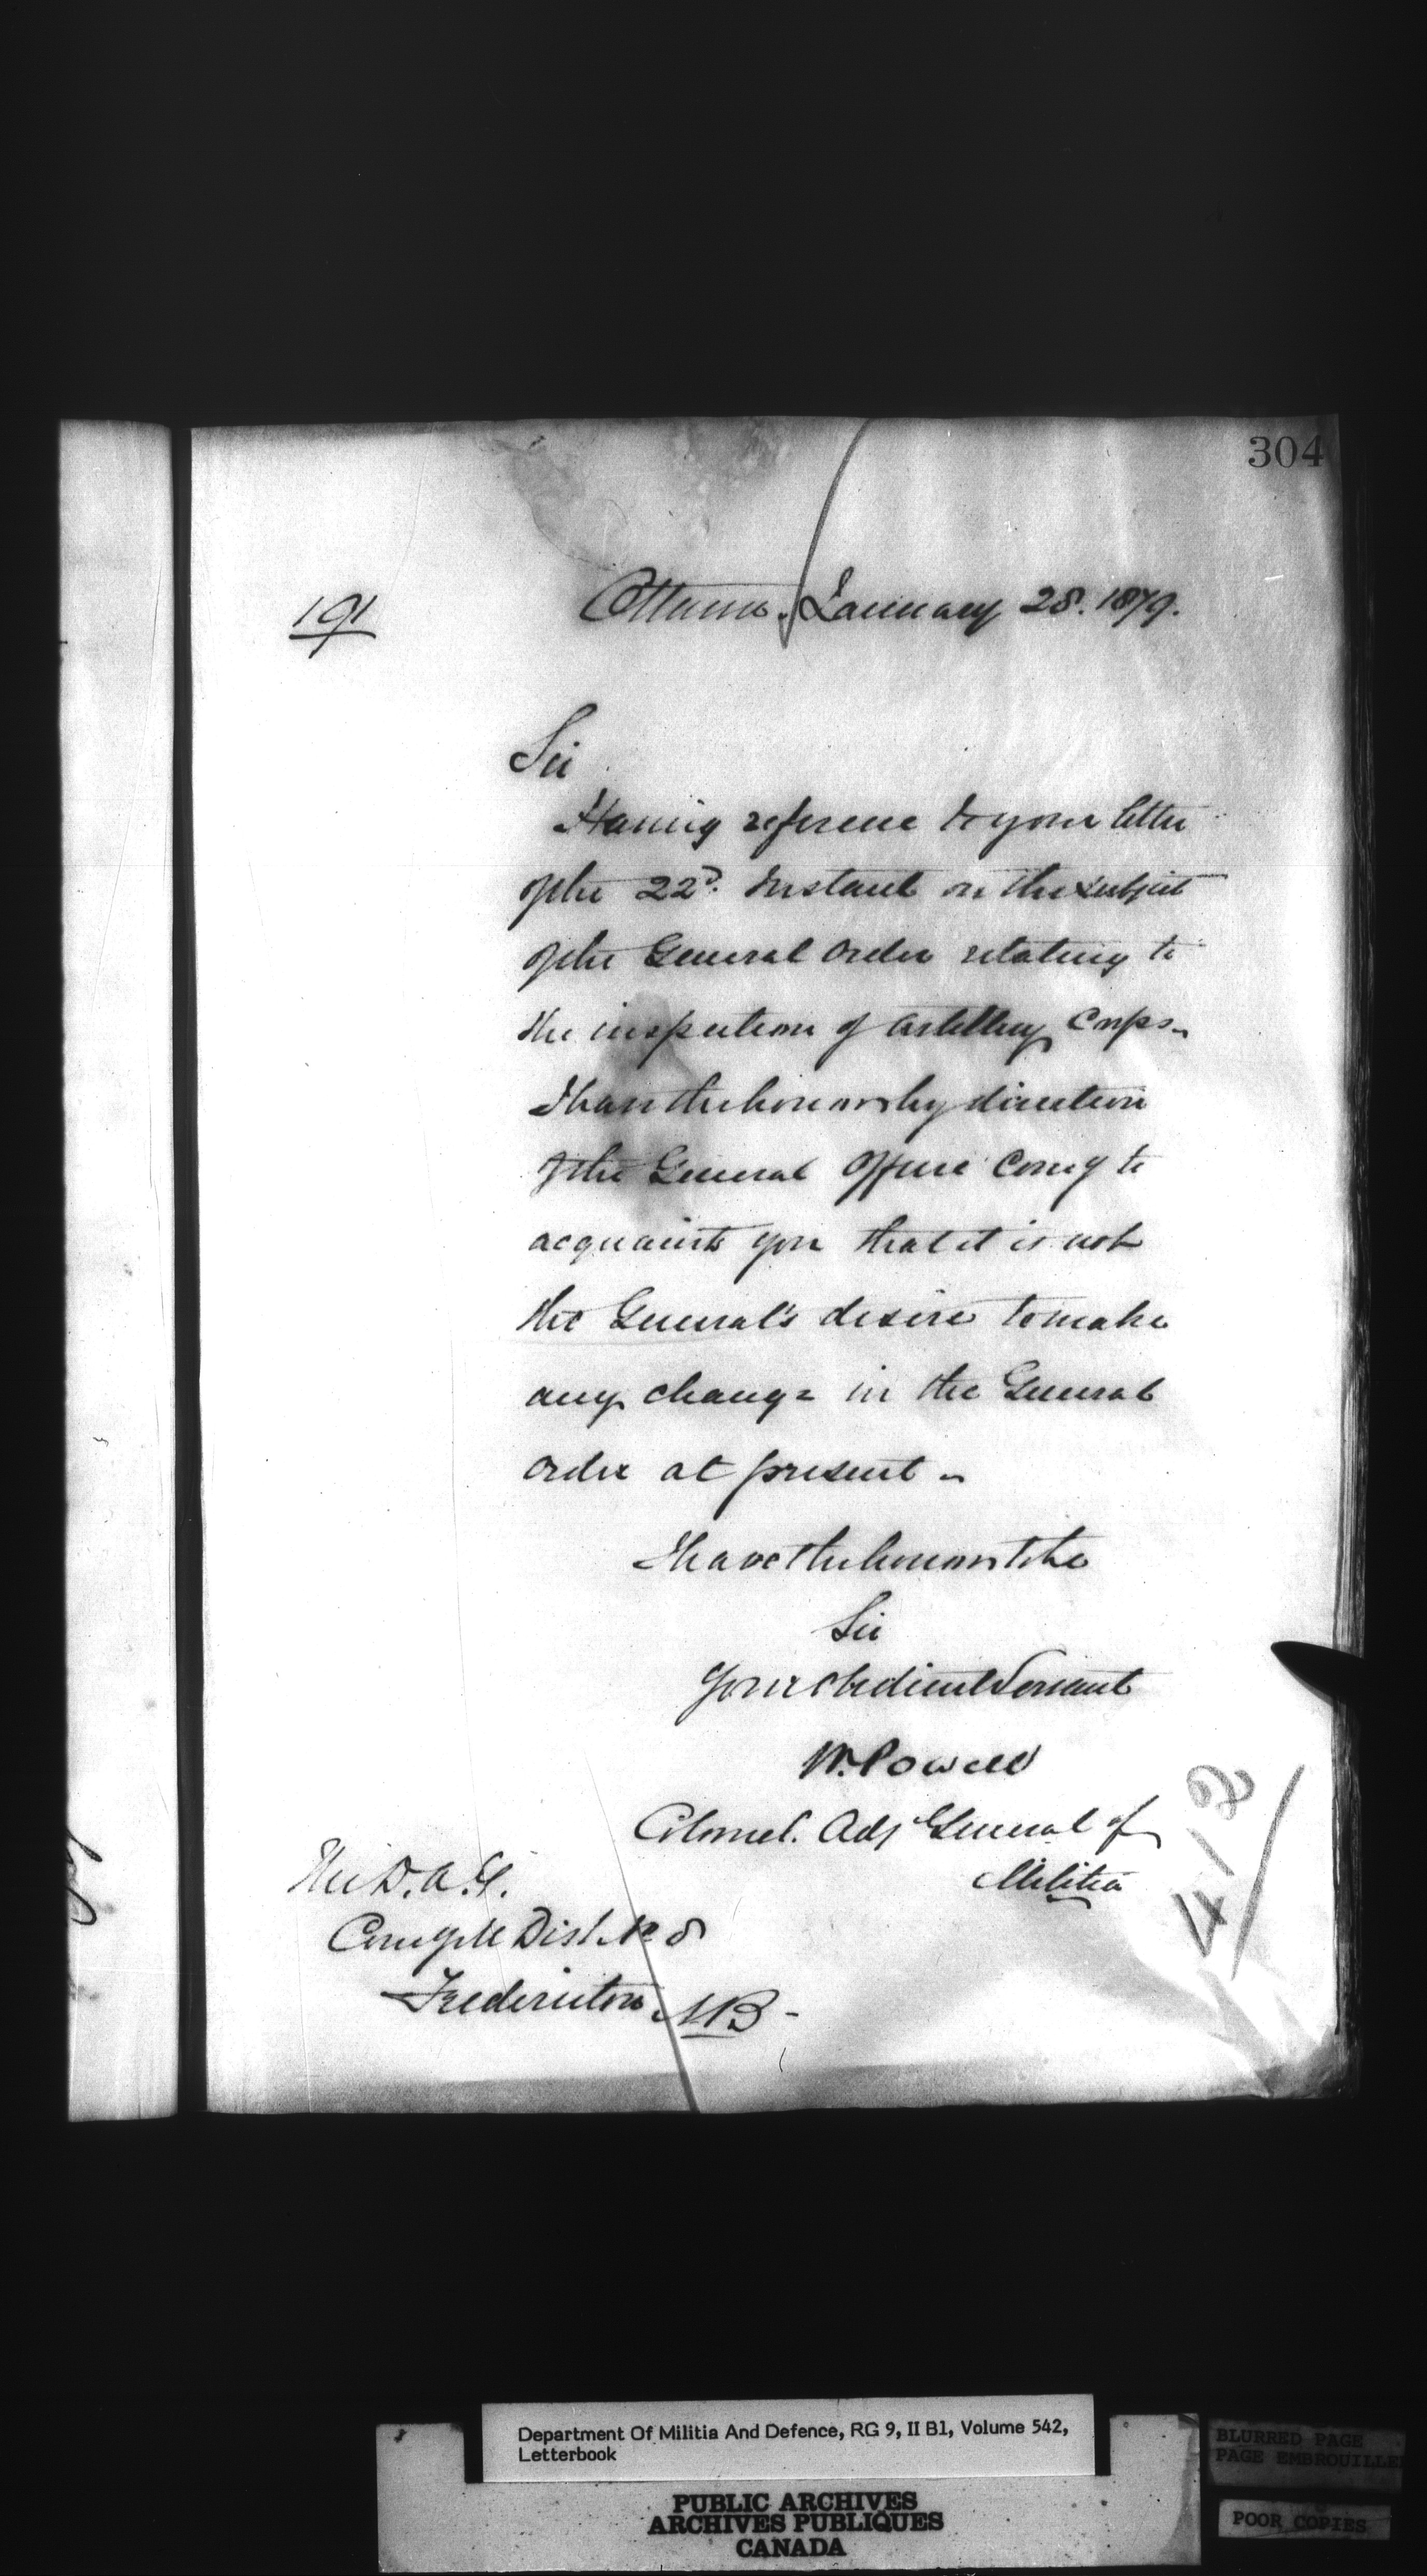 304
191
Ottawa. January 28. 1879.
Sir
Having reference to your letter
of the 22d. Instant on the subject
of the General Order relating to
the inspection of Artillery Corps.
I have the honor by direction
of the General Officer Comg to
acquaint you that it is not
the General's desire to make
any change in the General
Order at present.
I have the honor to be
Sir
Your obedient Servant
W. Powell
Colonel. Adj General of
Militia
The D. A. G.
Comg M Dist. No 8
Fredericton NB-
412
Department Of Militia And Defence, RG 9, II B1, Volume 542,
Letterbook
PUBLIC ARCHIVES
ARCHIVES PUBLIQUES
CANADA
BLURRED PAGE
PAGE EMBROUILLE
POOR COPIES